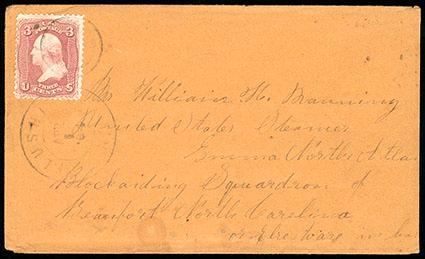 3 3
U.S.
POSTAGE
THREE
CENTS
U S
Mr William H. Branning
United States Steamer
Emma North Atlan
Blockaiding Squardron of
Newport North Carolina
or elsware in